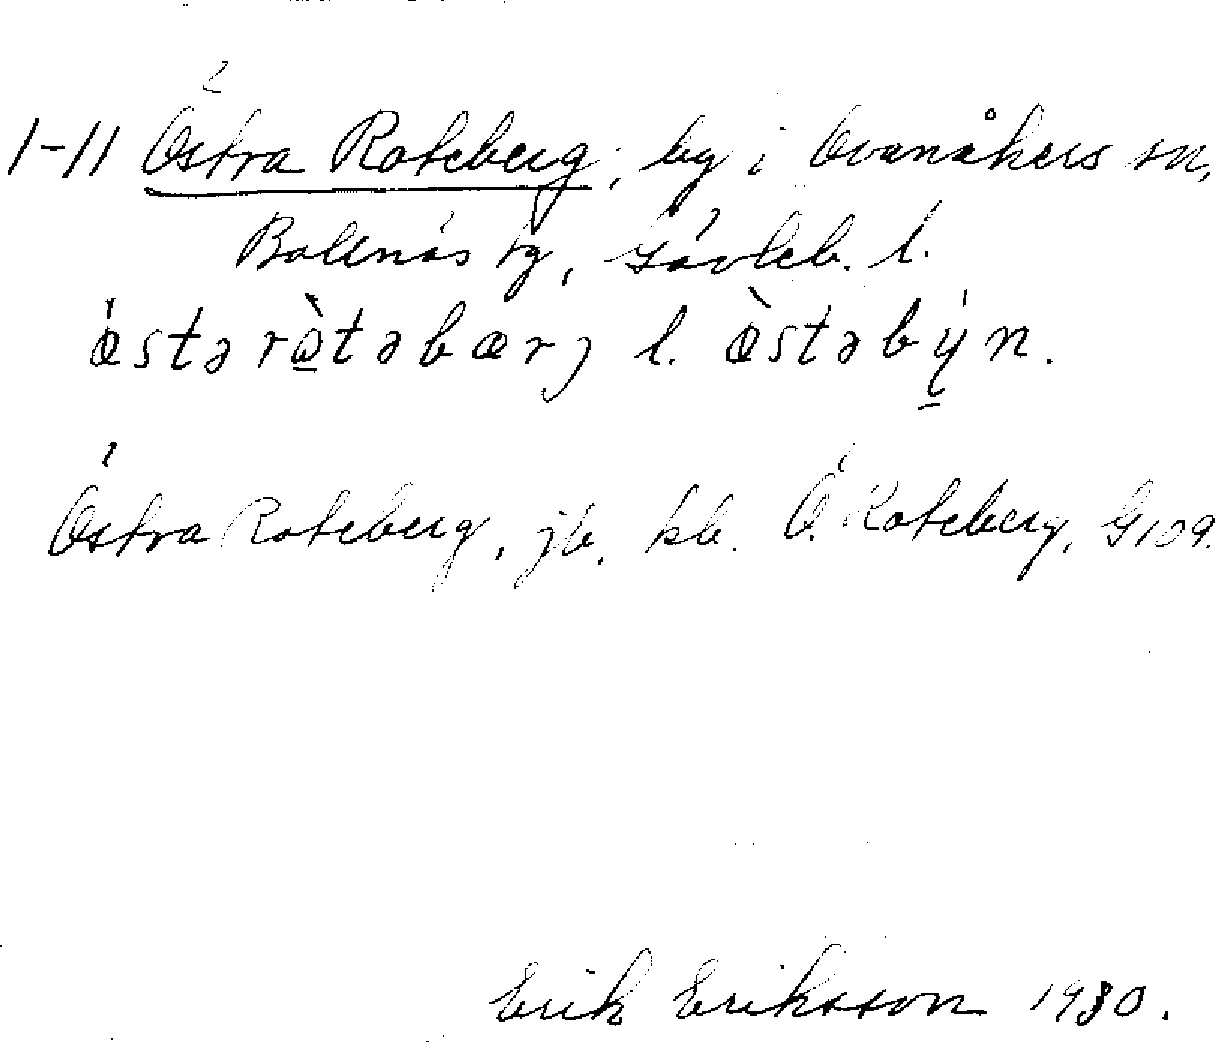 1-11 Östra Roteberg, by i Ovanåkers sn,
Bollnäs tg, Gävleb. l.
ǿstərò̱təbærj l. ø̀stəbý̱n.
Östra Roteberg, jb, kb. Ö. Roteberg, G 109.
Erik Eriksson 1930.